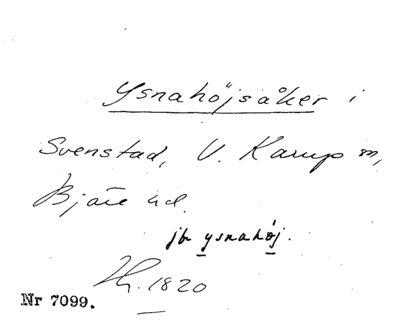 Ysnahöjsåker i
Svenstad, V. Karup sn,
Bjäre hd.
jbr ysnahöj.
Zh. 1820
Nr 7099.